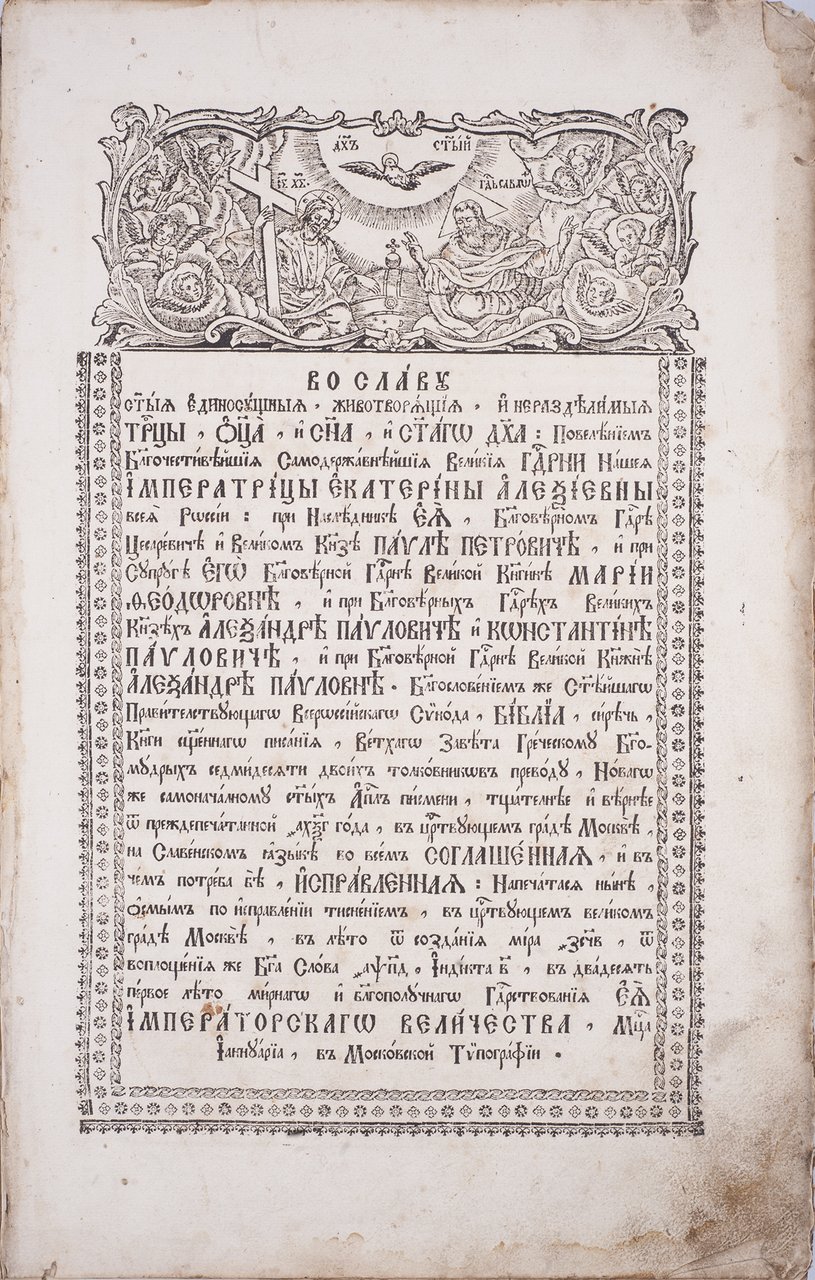 Дх҃ъ ст҃ы́й
І҃с х҃с.
Гд҇ь саваѡ҃
ВО СЛА́ВꙊ
ст҃ы́ѧ є҆диносꙋ́щныѧ, животворѧ́щїѧ, и҆ нераздѣ́лимыѧ
ТРЦ҃Ы, Ѻ҆Ц҃А̀, и҆ СН҃А, и҆ СТ҃А́ГѠ ДХ҃А: Повелѣ́нїемъ
Бл҃гочести́вѣйшїѧ Самодержа́внѣйшїѧ Вели́кїѧ ГДⷭ҇РНИ На́шеѧ
І҆МПЕРАТРИ́ЦЫ Є҆КАТЕРІ́НЫ А҆ЛЕѮІ́ЕВНЫ
всеѧ̀ Рѡссі́и: при Наслѣ́дникѣ Є҆Ѧ̀, Бл҃говѣ́рномъ Гдⷭ҇рѣ
Цесаре́вичѣ и҆ Вели́комъ Кнѧ́зѣ ПА́ѴЛѢ ПЕТРО́ВИЧѢ, и҆ при
Сꙋпрꙋ́гѣ Є҆ГѠ̀ Бл҃говѣ́рной Гдⷭ҇рнѣ Вели́кой Кнѧги́нѣ МАРІ́И
ѲЕО́ДѠРОВНѢ, и҆ при Бл҃говѣ́рныхъ Гдⷭ҇рѣхъ Вели́кихъ
Кнѧзѣ́хъ А҆ЛЕѮА́НДРѢ ПА́ѴЛОВИЧѢ и҆ КѠНСТАНТІ́НѢ
ПА́ѴЛОВИЧѢ, и҆ при Бл҃говѣ́рной Гдⷭ҇рнѣ Вели́кой Кнѧжнѣ̀
А҆ЛЕѮА́НДРѢ ПА́ѴЛОВНѢ. Бл҃гослове́нїемъ же Ст҃ѣ́йшагѡ
Прави́телствꙋющагѡ Всерѡссі́йскагѡ Сѵно́да, БІ́БЛІА, си́рѣчь,
Кни́ги сщ҃е́ннагѡ писа́нїѧ, Ве́тхагѡ Завѣ́та Гре́ческомꙋ Бг҃о-
мꙋ́дрыхъ седми́десѧти двои́хъ толко́вникѡвъ прево́дꙋ, Но́вагѡ
же самонача́лномꙋ ст҃ы́хъ А҆пⷭ҇лъ писмени, тща́телнѣе и҆ вѣ́рнѣе
ѿ преждепеча́танной ҂ахѯг го́да, въ црⷭ҇твꙋющемъ гра́дѣ Москвѣ̀,
на Славе́нскомъ ѧ҆зы́кѣ во все́мъ СОГЛАШЕ́ННАѦ, и҆ въ
че́мъ потре́ба бѣ̀, И҆СПРА́ВЛЕННАѦ: Напеча́тасѧ ны́нѣ,
ѻ҆смы́мъ по и҆справле́нїи тисне́нїемъ, въ црⷭ҇твꙋющемъ вели́комъ
гра́дѣ Москвѣ̀, въ лѣ́то ѿ созда́нїѧ мі́ра ҂зсч҃в, ѿ
воплоще́нїѧ же Бг҃а Сло́ва ҂аѱп҃д, І҆нді́кта в҃, въ два́десѧть
пе́рвое лѣ́то ми́рнагѡ и҆ бл҃гополꙋ́чнагѡ Гдⷭ҇рствованїѧ Є҆Ѧ̀
І҆МПЕРА́ТОРСКАГѠ ВЕЛИ́ЧЕСТВА, Мцⷭ҇а
І҆аннꙋа́рїа, въ Моско́вской Тѵпогра́фїи.